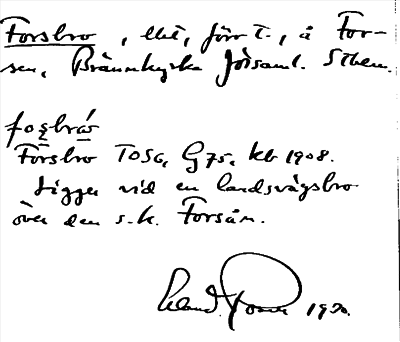 Forsbro, lht, förr t., å For-
sen, Brännkyrka församl. Sthm.
fosbrò
Forsbro TOSG, G75, kb 1908.
Ligger vid en landsvägsbro
över den s.k. Forsån.
1930.